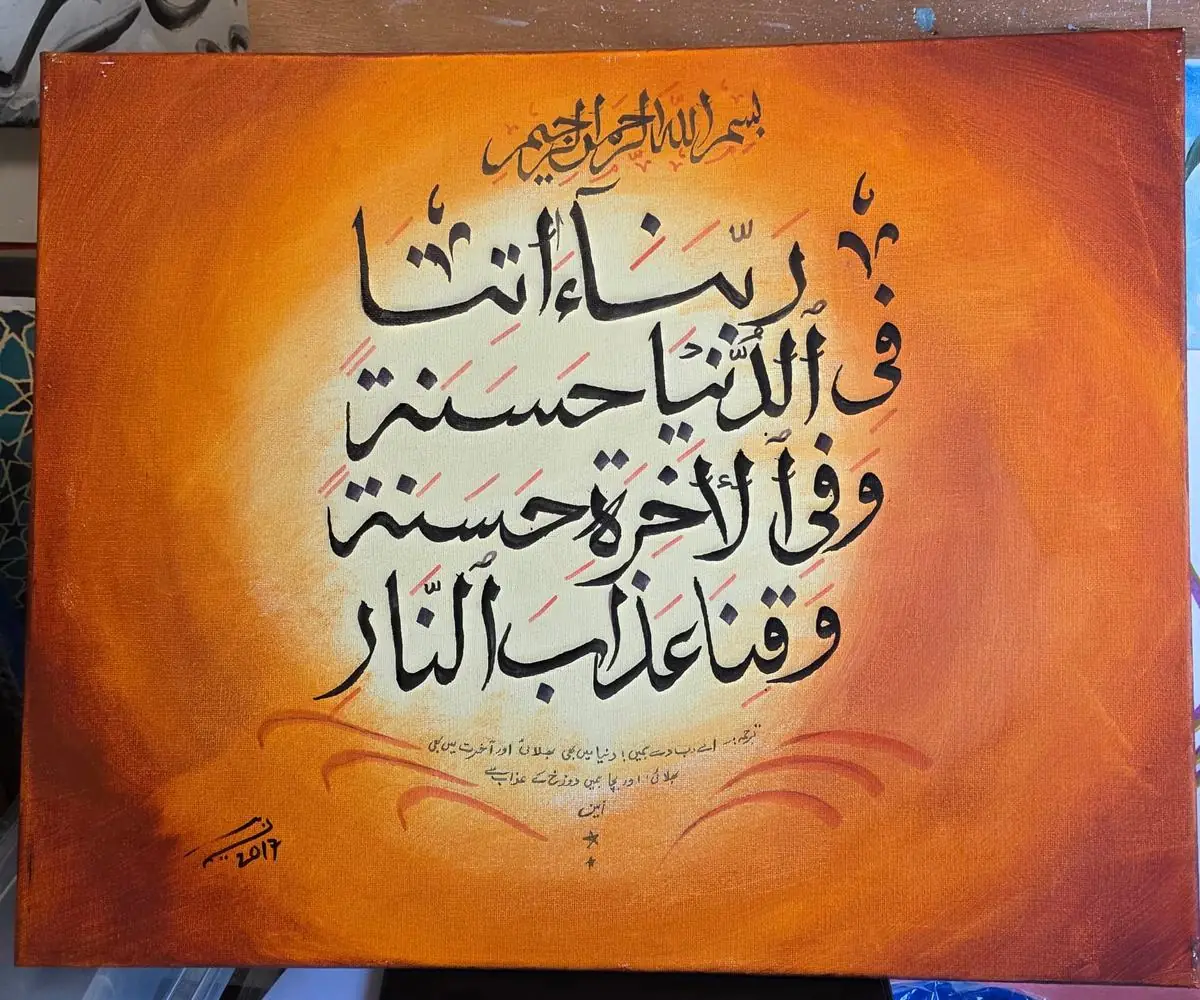 بسم الله الرحمن الرحيم
رَبَّنَآ ءَاتِنَا
فِى ٱلدُّنْيَا حَسَنَةً
وَفِى ٱلْأَخِرَةِ حَسَنَةً
وَقِنَا عَذَابَ ٱلنَّارِ
ترجمہ:۔ اے رب دے ہمیں! دنیا میں بھی بھلائی اور آخرت میں بھی
بھلائی! اور بچا ہمیں دوزخ کے عذاب سے
آمین
2017